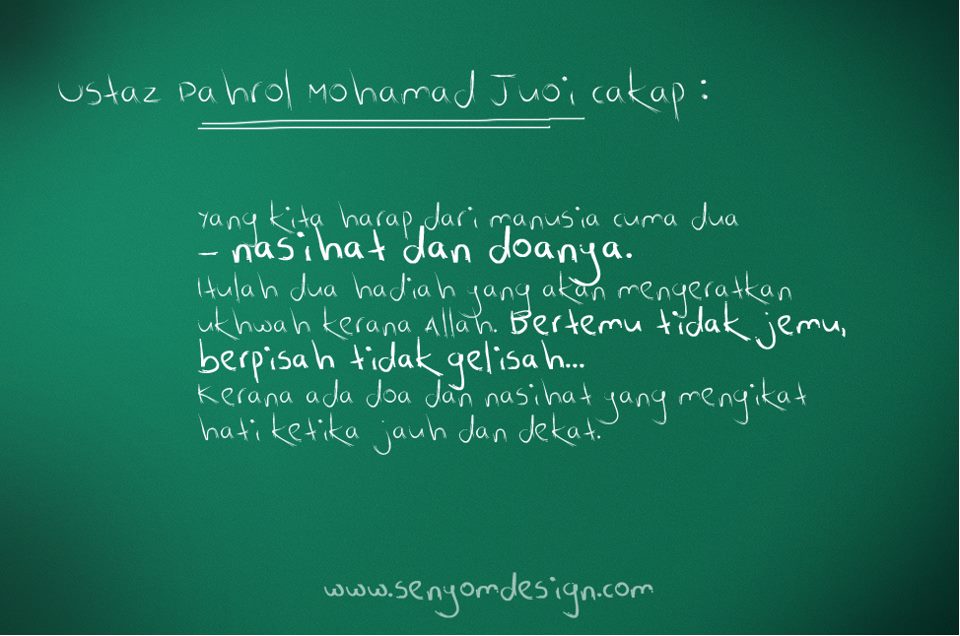 Ustaz Pahrol Mohamad Juoi cakap :
Yang kita harap dari manusia cuma dua
- nasihat dan doanya.
Itulah dua hadiah yang akan mengeratkan
ukhwah kerana Allah. Bertemu tidak jemu,
berpisah tidak gelisah...
Kerana ada doa dan nasihat yang mengikat
hati ketika jauh dan dekat.
www.senyomdesign.com